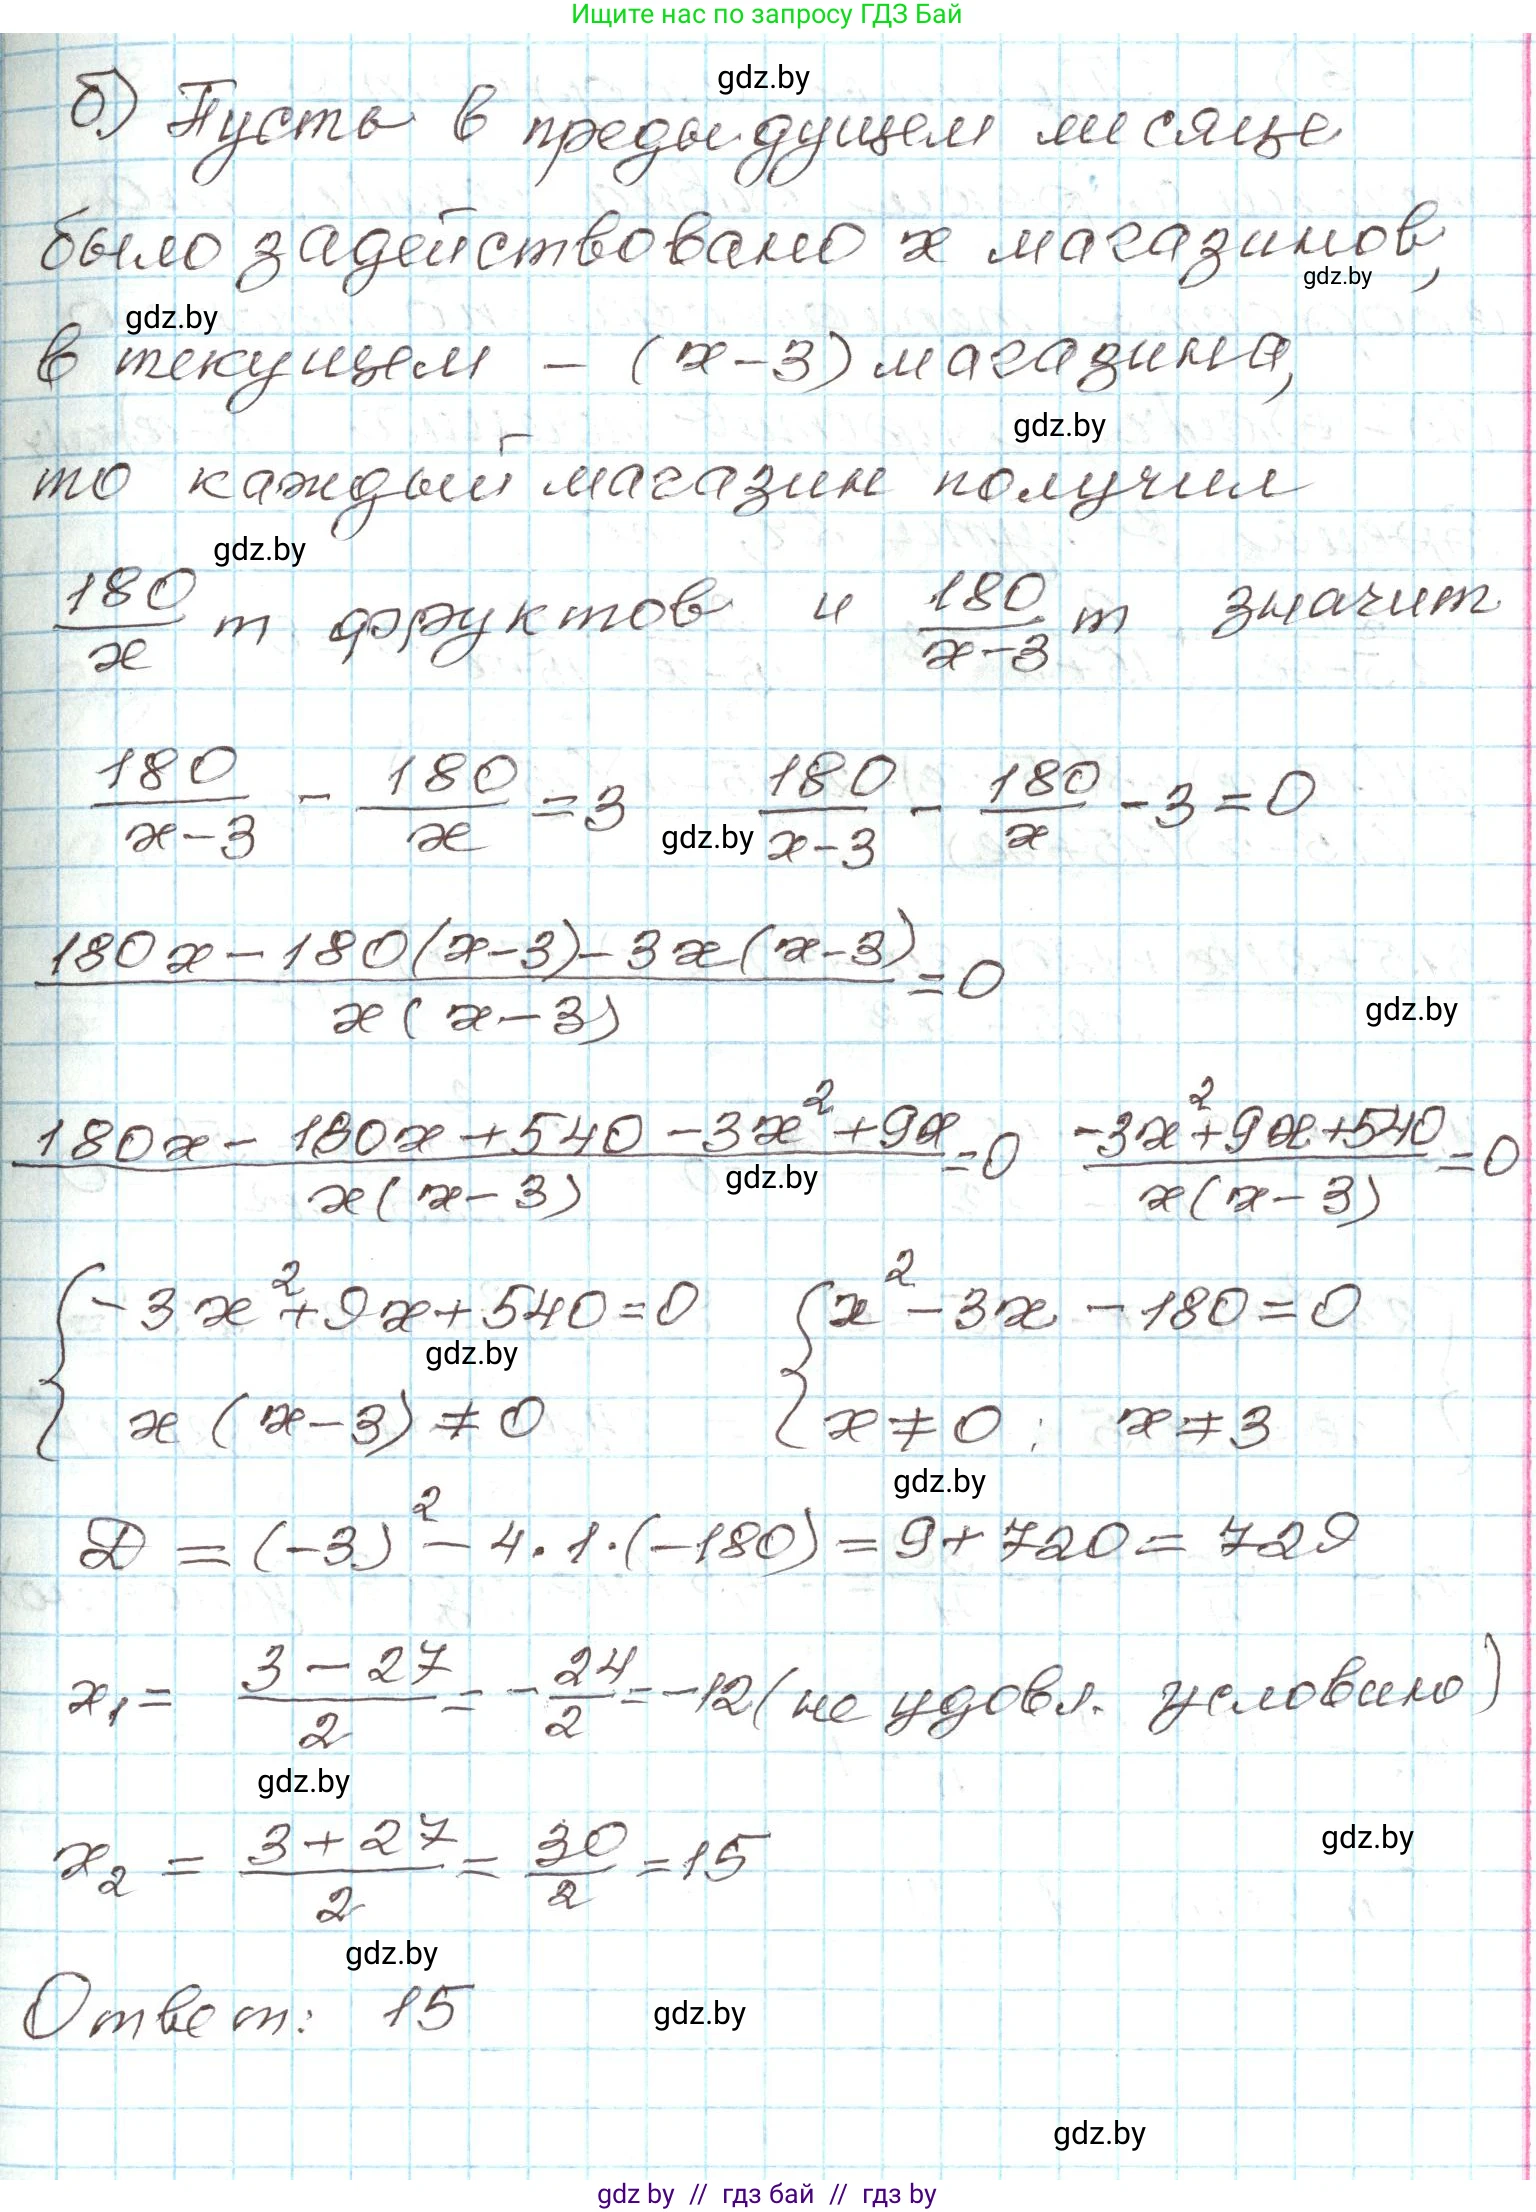 Ищите нас по запросу ГДЗ Бай
gdz.by
б) Пусть в предыдущем месяце
было задействовано x магазинов,
gdz.by
gdz.by
в текущем – (x-3) магазина,
gdz.by
то каждый магазин получил
gdz.by
180/x т фруктов и 180/(x-3) т значит
180/(x-3) - 180/x = 3 gdz.by 180/(x-3) - 180/x - 3 = 0
(180x - 180(x-3) - 3x(x-3))/(x(x-3)) = 0
gdz.by
(180x - 180x + 540 - 3x² + 9x)/(x(x-3)) = 0 (-3x² + 9x + 540)/(x(x-3)) = 0
gdz.by
{ -3x² + 9x + 540 = 0 { x² - 3x - 180 = 0
gdz.by
x(x-3) ≠ 0 x ≠ 0; x ≠ 3
gdz.by
D = (-3)² - 4·1·(-180) = 9 + 720 = 729
x₁ = (3 - 27)/2 = -24/2 = -12 (не удовл. условию)
gdz.by
x₂ = (3 + 27)/2 = 30/2 = 15
gdz.by
gdz.by
Ответ: 15
gdz.by
gdz.by
gdz by // гдз бай // гдз by